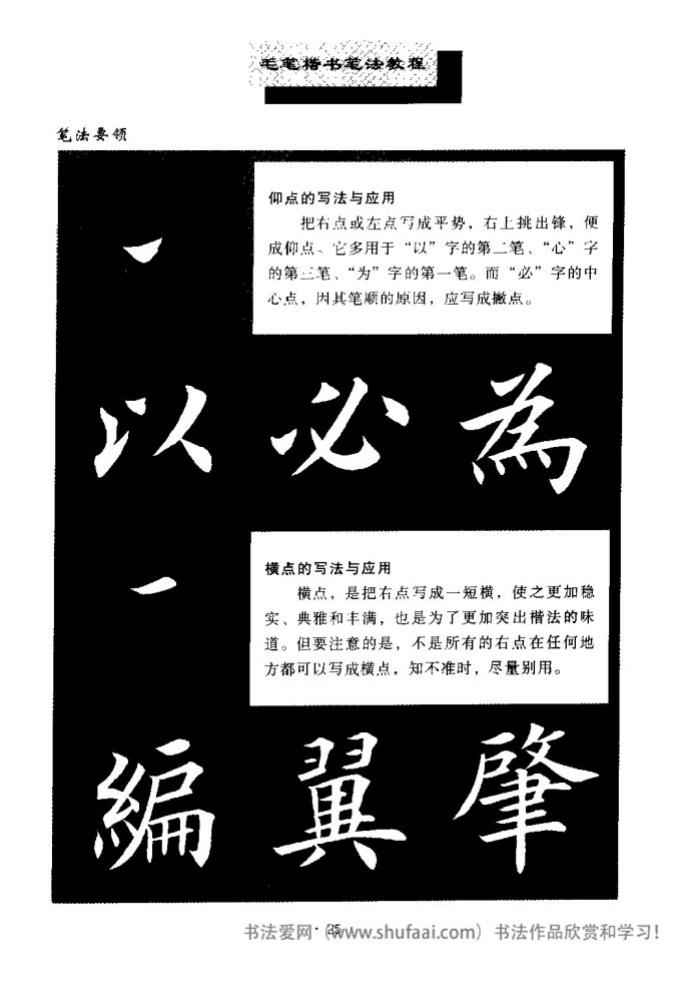 毛笔楷书笔法教程
笔法要领
仰点的写法与应用
把右点或左点写成平势，右上挑出锋，便
成仰点、它多用于“以”字的第二笔、“心”字
的第三笔、“为”字的第一笔。而“必”字的中
心点，因其笔顺的原因，应写成撇点。
以必為
横点的写法与应用
横点，是把右点写成一短横，使之更加稳
实、典雅和丰满，也是为了更加突出楷法的味
道。但要注意的是，不是所有的右点在任何地
方都可以写成横点，知不准时，尽量别用。
編翼肇
· 25
书法爱网（www.shufaai.com）书法作品欣赏和学习！